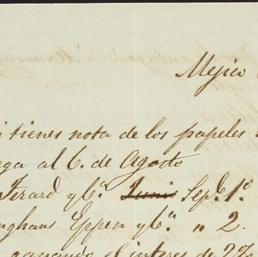 Mejico
i tienes nota de los papeles
ga al 6. de Agosto
Terard y Cª. Junio Sepe. 1º.
nghaus Eppen y Cª. " 2.
ganando el interes de 2%